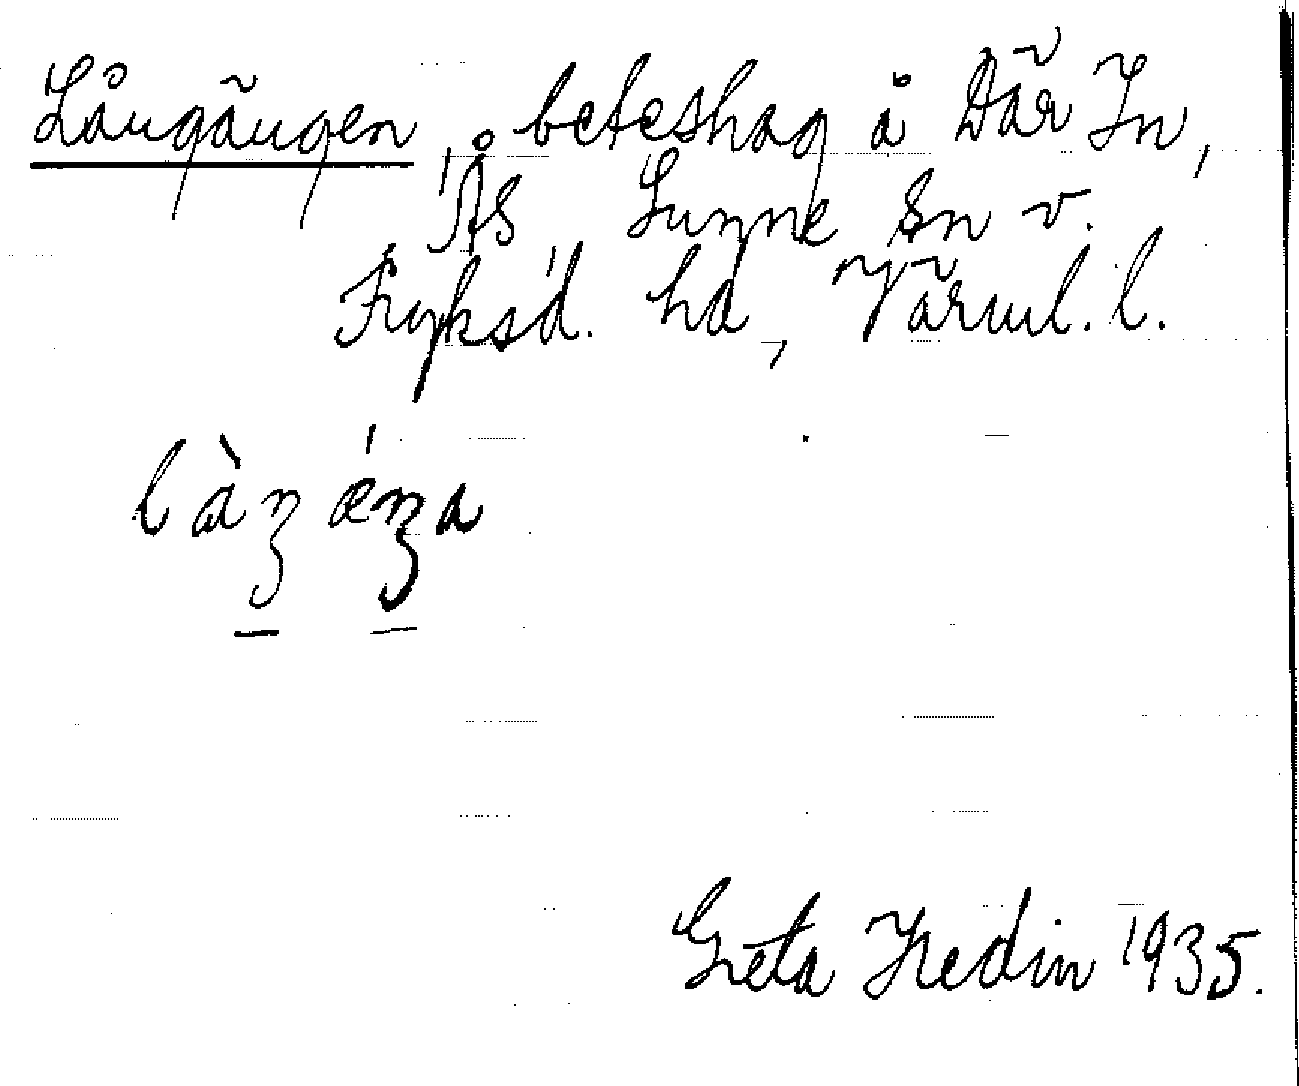 Långängen, beteshag å Där In,
Ås Sunne sn v.
Fryksd. hd, Värml. l.
làŋ ǽŋa
Greta Hedin 1935.